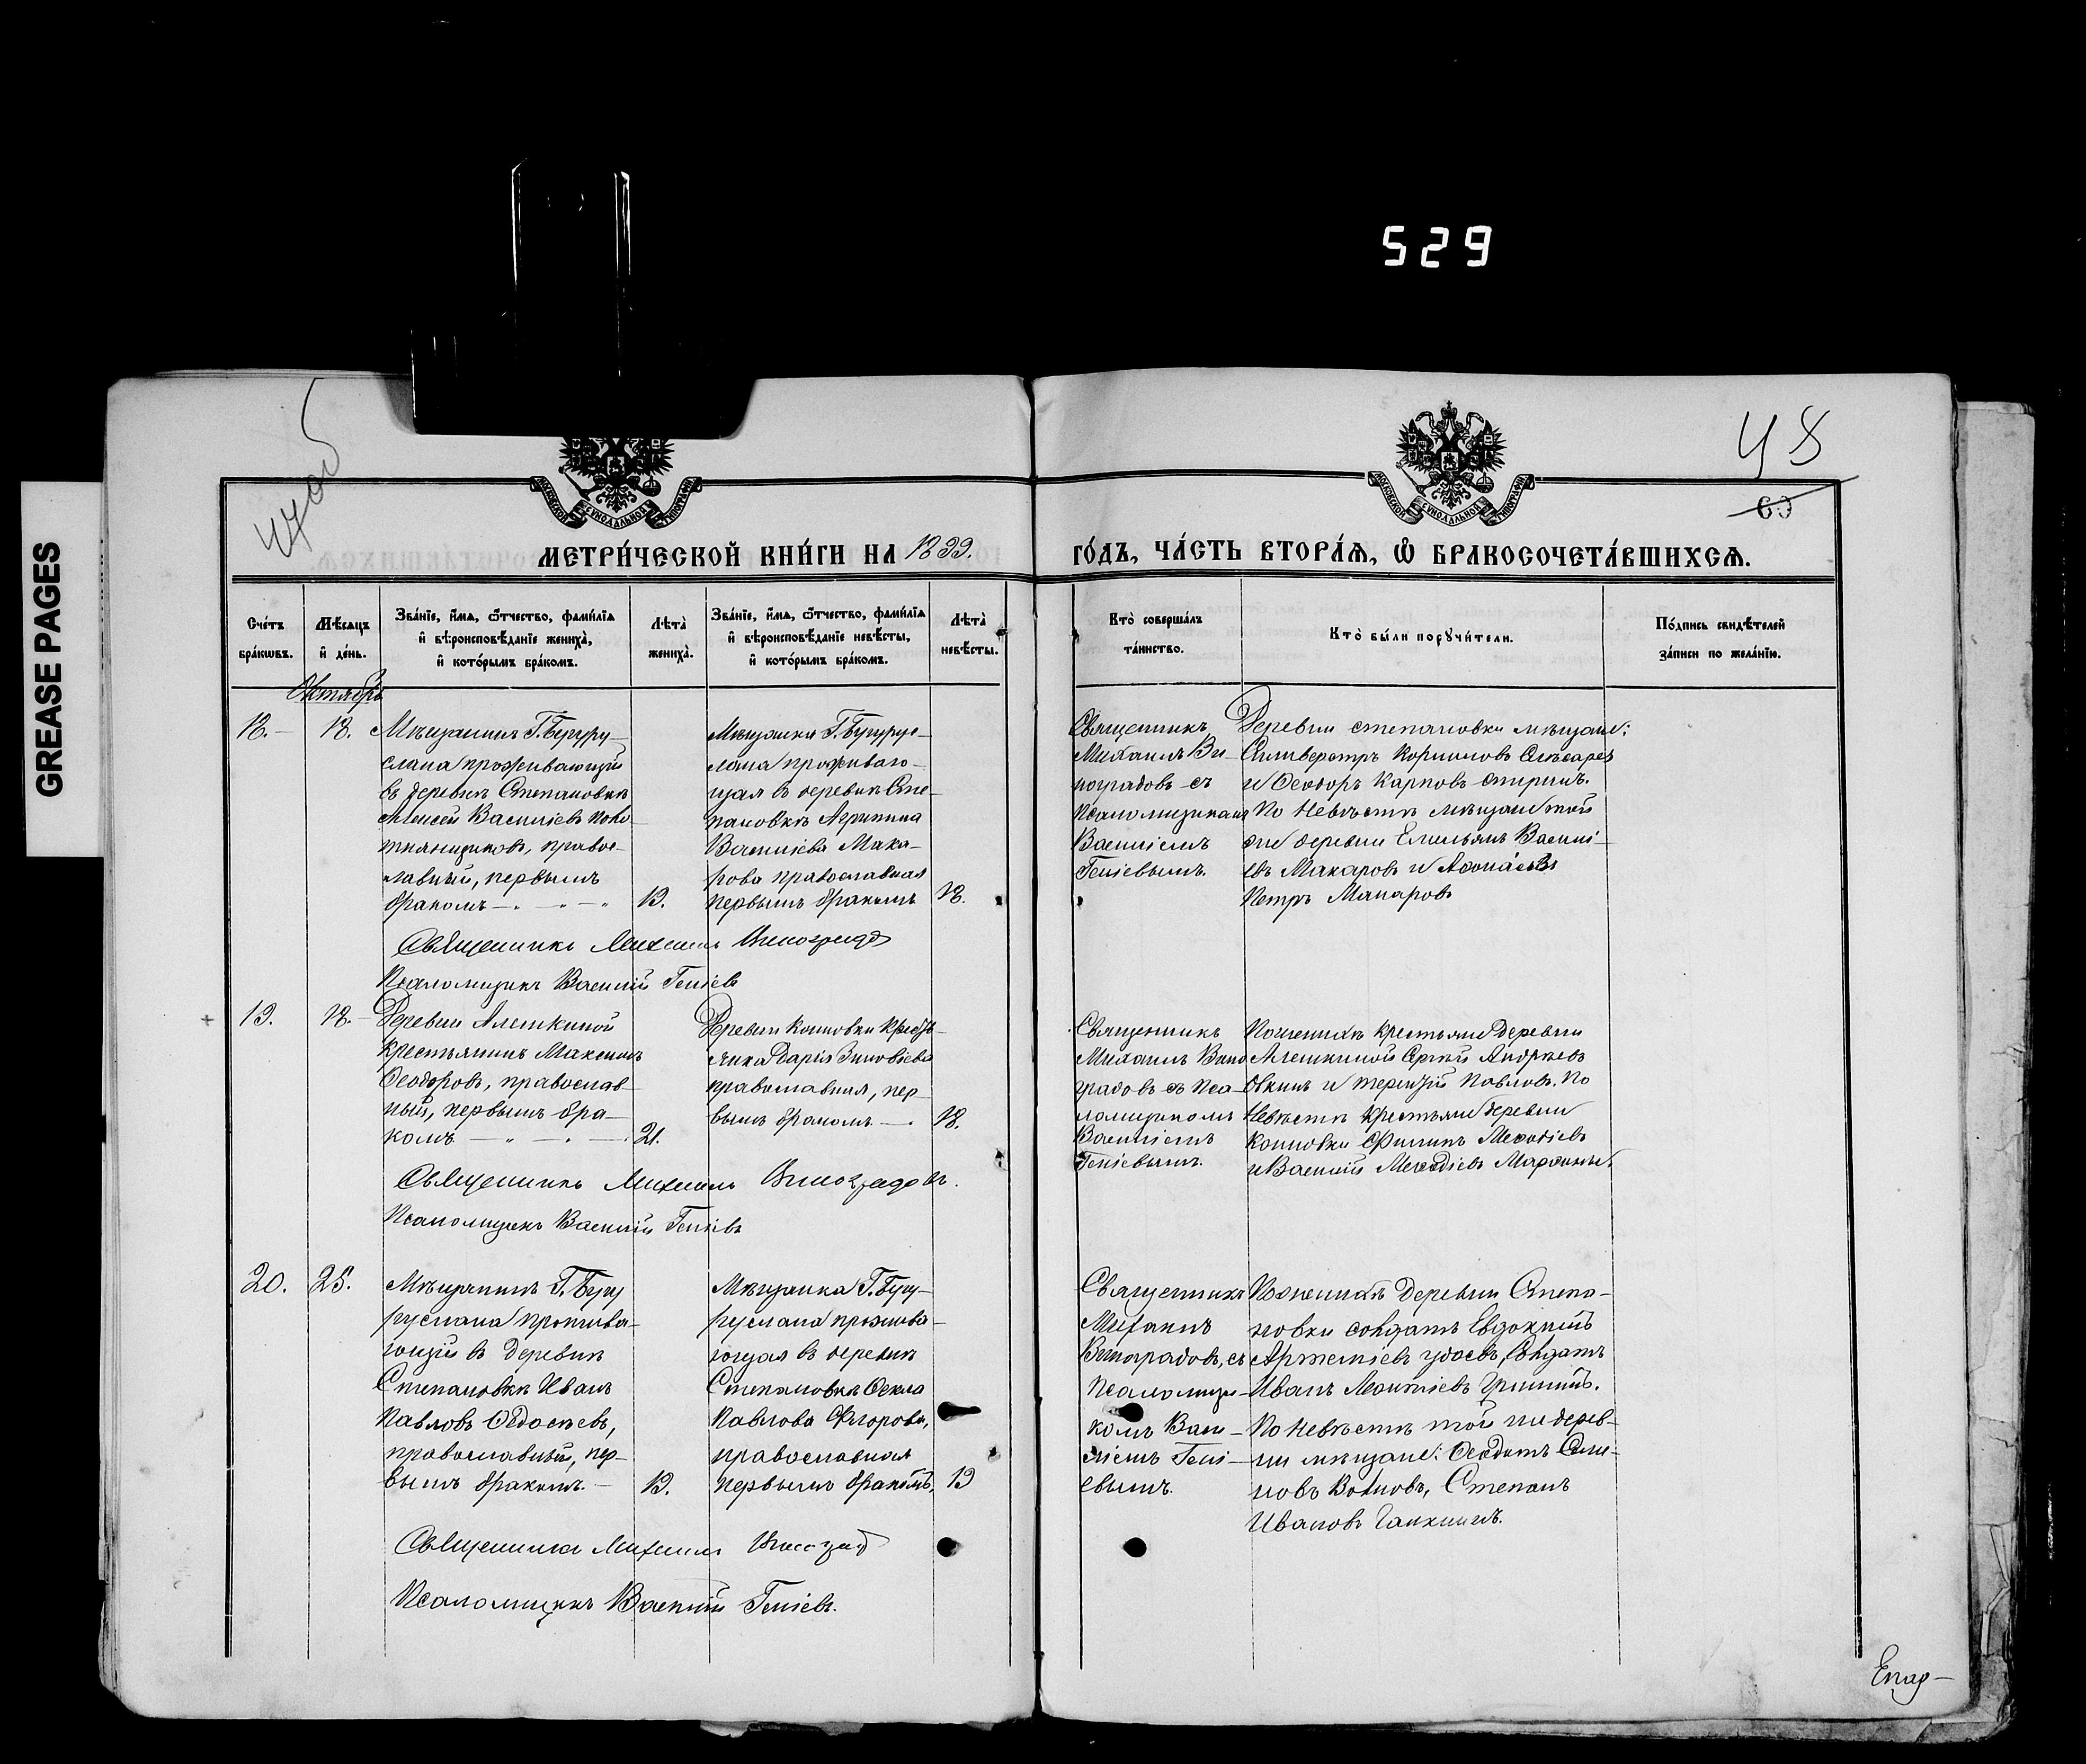 529
GREASE PAGES
47об
48
60
МОСКОВСКОЙ СУНОДАЛЬНОЙ ТИПОГРАФІИ
МОСКОВСКОЙ СУНОДАЛЬНОЙ ТИПОГРАФІИ
МЕТРИ́ЧЕСКОЙ КНИ́ГИ НА 1899.
ГО́ДЪ, ЧА́СТЬ ВТОРА́Ѧ, Ѽ БРАКОСОЧЕТА́ВШИХСѦ.
Сче́тъ бра́кѡвъ.
Мѣ́сяцъ и҆ де́нь.
Зва́нїе, и҆́мя, ѻ҆́тчество, фами́лїя и҆ вѣроисповѣ́данїе жениха̀, и҆ кото́рымъ бра́комъ.
Лѣта̀ жениха̀.
Зва́нїе, и҆́мя, ѻ҆́тчество, фами́лїя и҆ вѣроисповѣ́данїе невѣ́сты, и҆ кото́рымъ бра́комъ.
Лѣта̀ невѣ́сты.
Кто̀ соверша́лъ та́инство.
Кто̀ бы́ли порꙋчи́тели.
По́дпись свидѣ́телей за́писи по жела́нїю.
Октябрь
18.
18.
Мѣщанинъ Г. Бугуру-
слана проживающій
въ деревнѣ Степановкѣ
Алексей Василіевъ
правос-
лавный, первымъ
бракомъ
19.
Мѣщанка Г. Бугурус-
лана проживаю-
щая въ деревнѣ Сте-
пановкѣ Агрипина
Василіева Мака-
рова православная
первымъ бракомъ
18.
Священникъ
Михаилъ Ви-
ноградовъ съ
Псаломщикомъ
Василіемъ
Геніевымъ.
Деревни степановки мѣщане:
Сильверстръ Корниловъ
и Ѳеодоръ Карповъ
По Невѣстѣ мѣщане той
же деревни Емельянъ Василі-
евъ Макаровъ и
Петръ Макаровъ
Священникъ Михаилъ Виноградовъ
Псаломщикъ Василій Геніевъ
19.
18.
Деревни Алешкиной
крестьянинъ Максимъ
Ѳеодоровъ, православ-
ный, первымъ бра-
комъ
21.
Деревни Коиновки крестья-
нка Дарія Зиновіева
православная, пер-
вымъ бракомъ
18.
Священникъ
Михаилъ Вино
градовъ съ Пса-
ломщикомъ
Василіемъ
Геніевымъ.
По женихѣ крестьяне деревни
Алешкиной Сергій Андреевъ
и Терентій Павловъ. По
Невѣстѣ крестьяне деревни
Филипъ Меѳодіевъ
и Василій Меѳодіевъ
Священникъ Михаилъ Виноградовъ.
Псаломщикъ Василій Геніевъ
20.
25.
Мѣщанинъ Г. Бугу
руслана прожива-
ющій въ деревнѣ
Степановкѣ Иванъ
Павловъ Ѳедосѣевъ,
православный, пер-
вымъ бракомъ.
19.
Мѣщанка Г. Бугу-
руслана прожива-
ющая въ деревнѣ
Степановкѣ Ѳекла
Павлова Флорова,
православная
первымъ бракомъ,
19
Священникъ
Михаилъ
Виноградовъ, съ
псаломщи-
комъ Васи-
ліемъ Гені-
евымъ.
По женихѣ деревни Степа-
новки солдатъ Евдокимъ
Артеміевъ солдатъ
Иванъ Леонтіевъ
По Невѣстѣ той же дерев-
ни мѣщане: Ѳеодотъ Семе-
новъ Степанъ
Ивановъ
Священникъ Михаилъ Виноградовъ
Псаломщикъ Василій Геніевъ.